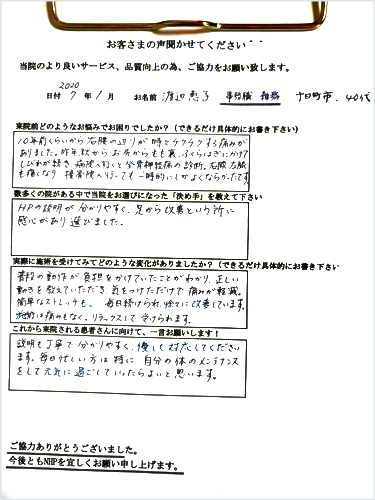 お客さまの声聞かせてください＾＾
当院のより良いサービス、品質向上の為、ご協力をお願い致します。
日付 2020 7年/月 お名前 渡辺恵子 事務職 十日町市・40代
来院前どのようなお悩みでお困りでしたか？（できるだけ具体的にお書き下さい）
10年前くらいから右腰の辺りが時々チクチクする痛みが
ありました。昨年秋から お尻からもも裏、ふくらはぎにかけて
しびれが続き 病院へ行くと 坐骨神経痛の診断。右腰、右股
も痛くなり 接骨院へ行っても 一時的にしかよくならなかったです。
数多くの院がある中で当院をお選びになった「決め手」を教えて下さい
HPの説明が分かりやすく、足から改善という所に
感心があり選びました。
実際に施術を受けてみてどのような変化がありましたか？（できるだけ具体的にお書き下さい
普段の動作が負担をかけていたことがわかり、正しい
動きを教えていただき、気をつけただけで痛みが軽減。
簡単なストレッチも、毎日続けられ、徐々に改善しています。
施術は痛みもなく、リラックスして受けられます。
これから来院される患者さんに向けて、一言お願いします！
説明も丁寧で分かりやすく、優しく対応してください
ます。毎日忙しい方は特に 自分の体のメンテナンス
をして元気に過ごしていったらよいと思います。
ご協力ありがとうございました。
今後ともNHPを宜しくお願い申し上げます。